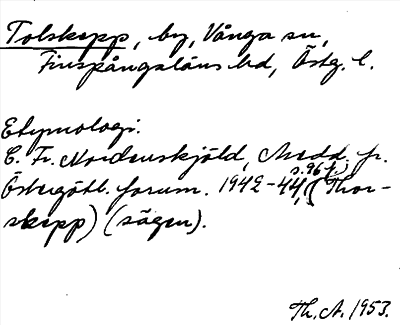 Tolskepp, by, Vånga sn,
Finspångaläns hd, Östg. l.
Etymologi.
C. Fr. Nordenskjöld, Medd. fr.
s. 96 f.
Östergötl. fornm. 1942-44, (Thor-
skepp) (sägen).
Th. A. 1953.